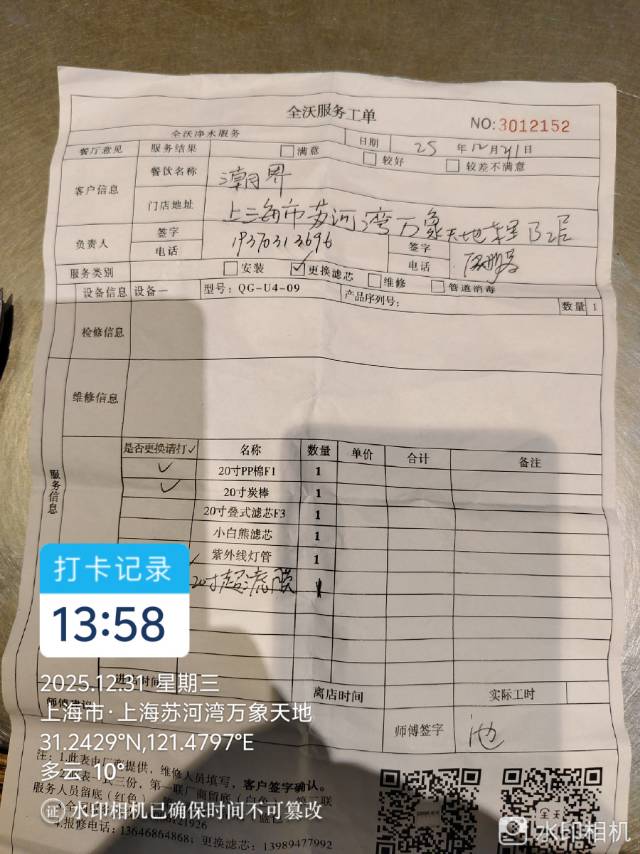 全沃服务工单
NO:3012152
全沃净水服务 日期 25 年12月31日
餐厅意见 服务结果 满意 较好 较差不满意
客户信息 餐饮名称 潮界
门店地址 上海市苏河湾万象天地
负责人 签字 签字
电话 19370313696 电话
服务类别 安装 ✓更换滤芯 维修 管道消毒
设备信息 设备一 型号: QG-U4-09 产品序列号: 数量 1
检修信息
维修信息
服务信息
是否更换请打✓ 名称 数量 单价 合计 备注
✓ 20寸PP棉F1 1
✓ 20寸炭棒 1
20寸叠式滤芯F3 1
小白熊滤芯 1
紫外线灯管 1
20寸超滤膜 1
打卡记录
13:58
进店时间 离店时间 实际工时
2025.12.31 星期三
师傅签字 池
上海市·上海苏河湾万象天地
31.2429°N,121.4797°E
多云 10°
注: 1.此表由厂家提供，维修人员填写，客户签字确认。
水印相机已确保时间不可篡改
4.报修电话: 13646864868; 更换滤芯: 13989477992
水印相机